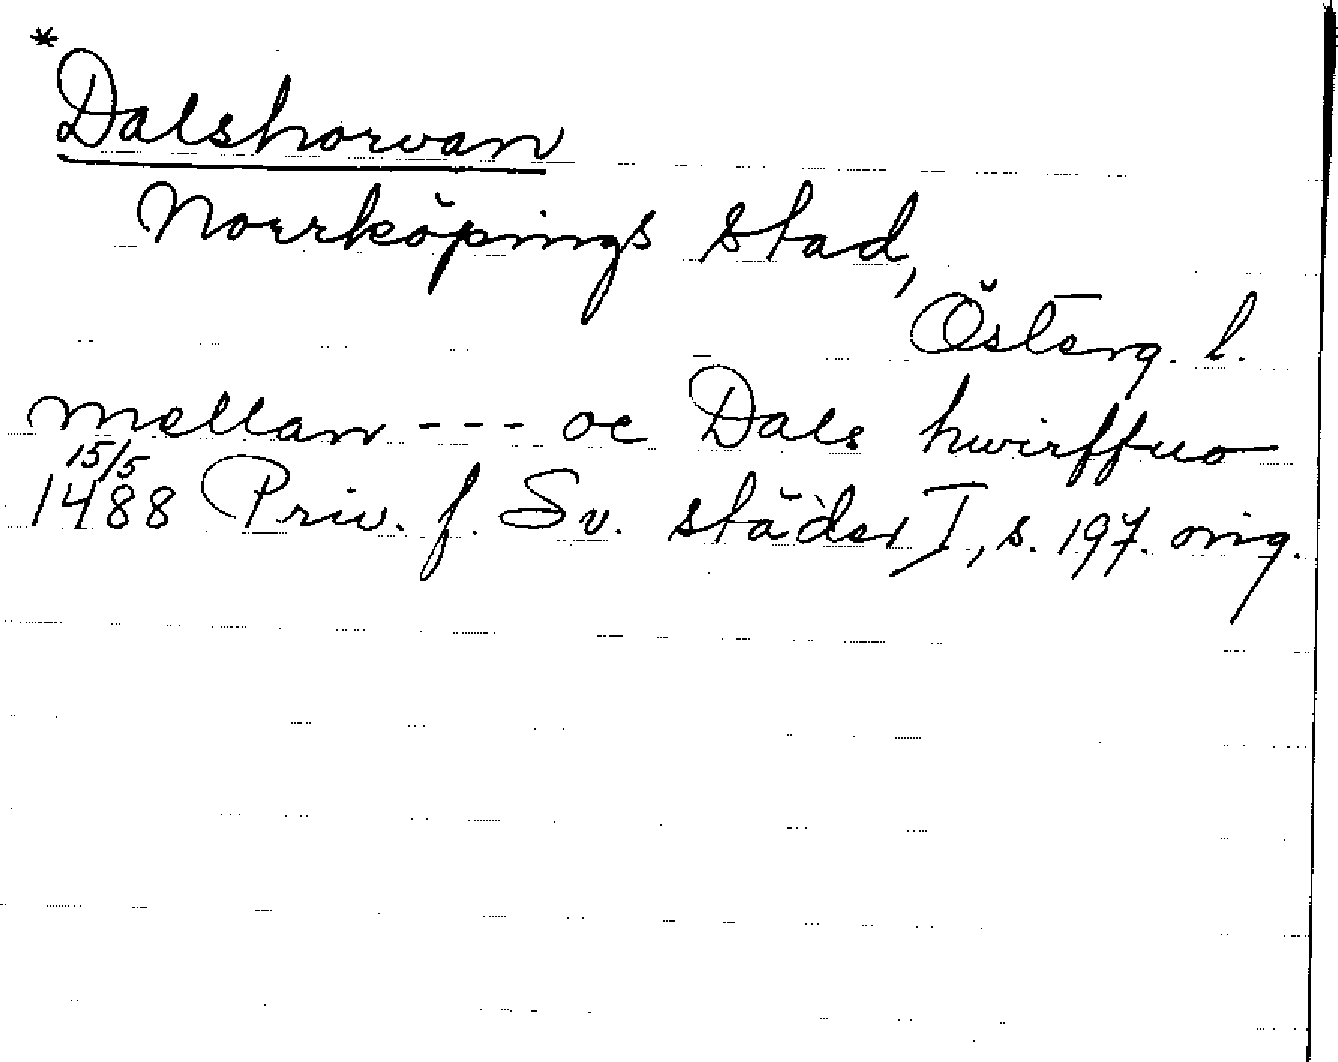 *Dalshorvan
Norrköpings stad,
Österg. l.
mellan --- oc Dals hwirffuo
15/5
1488 Priv. f. Sv. städer I, s. 197. orig.